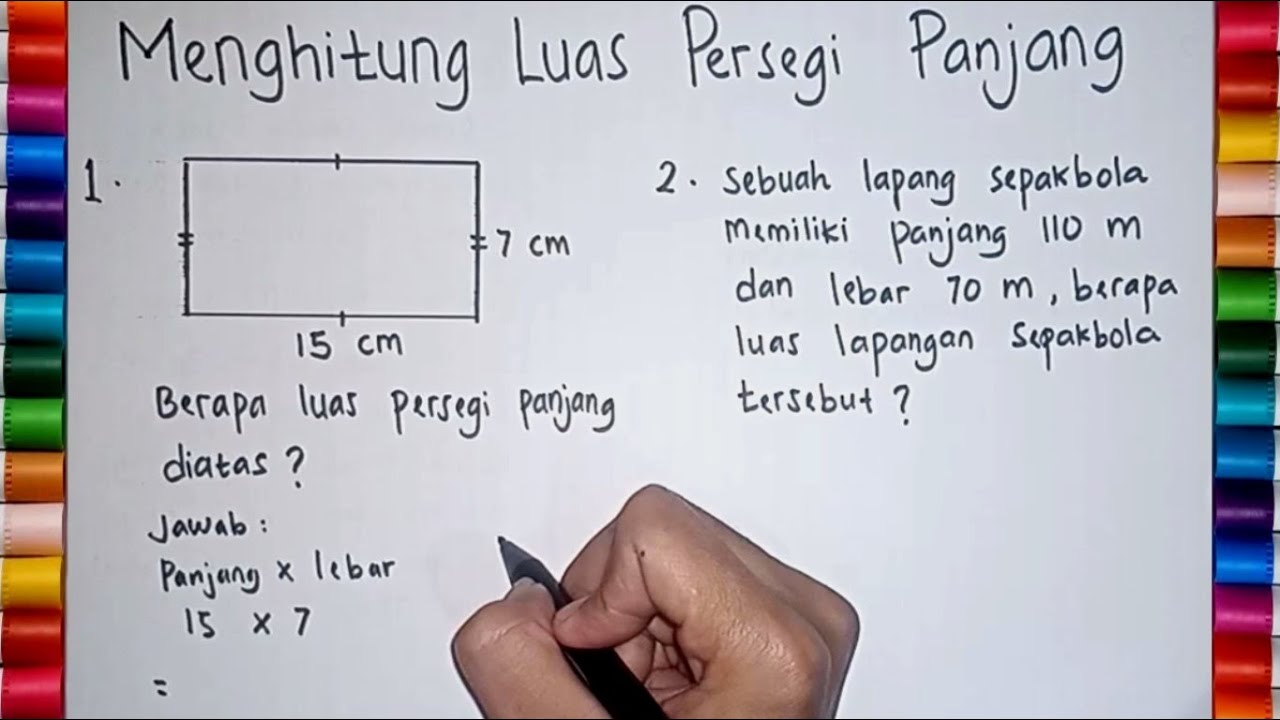 Menghitung Luas Persegi Panjang
1.
7 cm
15 cm
Berapa luas persegi panjang
diatas ?
Jawab :
Panjang x lebar
15 x 7
=
2. Sebuah lapang sepakbola
memiliki panjang 110 m
dan lebar 70 m, berapa
luas lapangan sepakbola
tersebut ?